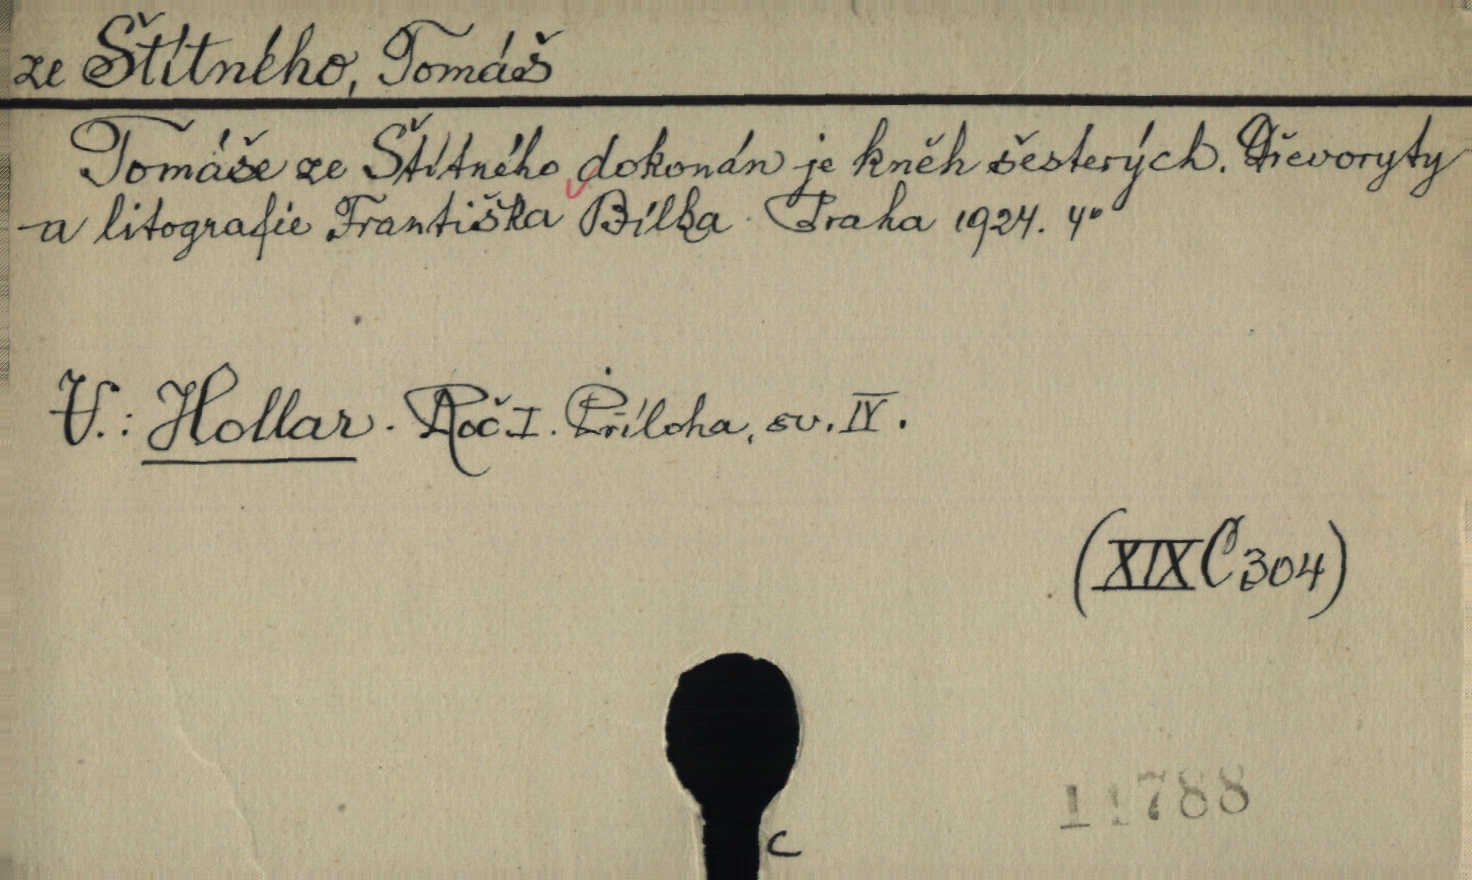 ze Štítného, Tomáš
Tomáše ze Štítného dokonán je kněh šesterých. Dřevoryty
a litografie Františka Bílka. Praha 1924. 4°
V.: Hollar. Roč. I. Příloha, sv. IV.
(XIX C 304)
11788
C